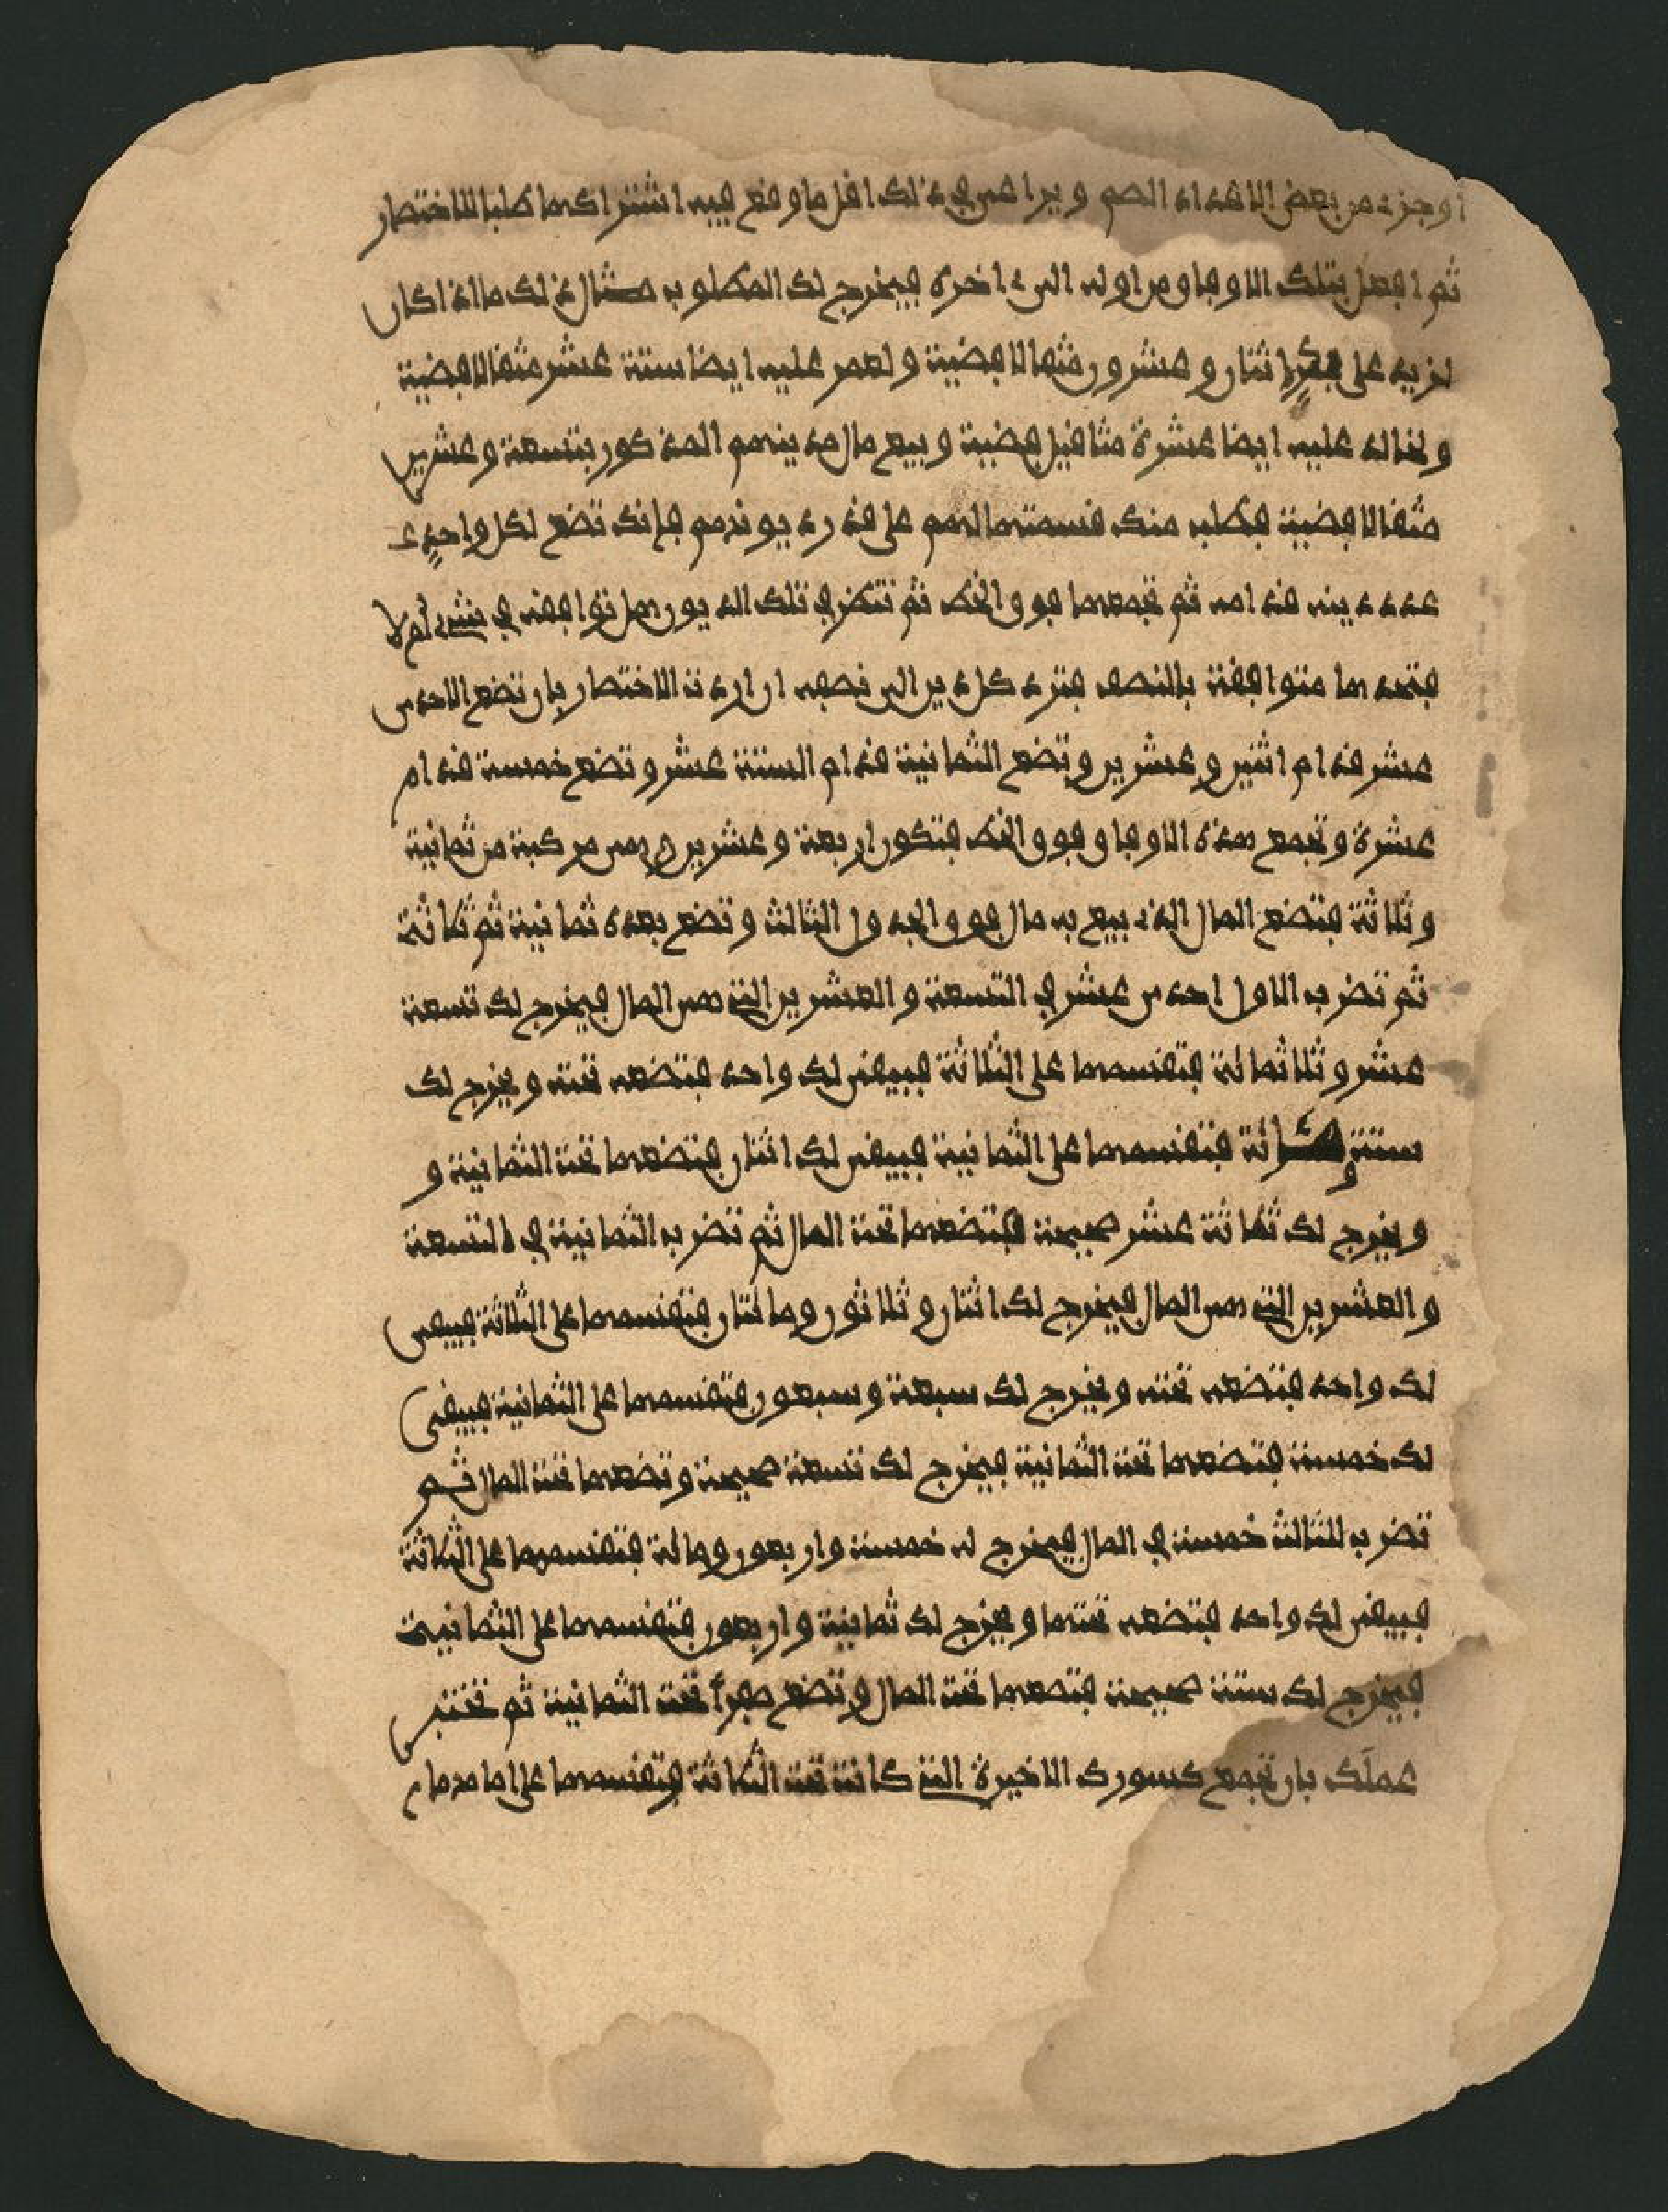 أو جزء من بعض الاعداد الصم ويراعى في ذلك اقل ما وقع فيه اشتراكها طلبا للاختصار
ثم افعل بتلك الاوفاق من اوله الى ءاخره فيخرج لك المطلوب مثال ذلك ما اذا كان
لزيد على اثنان وعشرون مثقالا فضية ولعمر عليه ايضا ستة عشر مثقالا فضية
ولخالد عليه ايضا عشرة مثاقيل فضية وبيع مال مدينهم المذكور بتسعة وعشرين
مثقالا فضية فطلب منك قسمتها لهم على قدر ديونهم فإنك تضع لكل واحد
عدد دينه قدامه ثم تجمعها فوق الخط ثم تنظر في تلك الديون هل توافقت في شيء أم لا
فتجدها متوافقة بالنصف فترد كل دين الى نصفه ان اردت الاختصار بان تضع الاحد
عشر قدام اثنين وعشرين وتضع الثمانية قدام الستة عشر وتضع خمسة قدام
عشرة وتجمع هذه الاوفاق فوق الخط فتكون اربعة وعشرين وهى مركبة من ثمانية
وثلاثة فتضع المال الذي بيع به مال فوق الجدول الثالث وتضع بعده ثمانية ثم ثلاثة
ثم تضرب الاول احد عشر في التسعة والعشرين التي هى المال فيخرج لك تسعة
عشر وثلاثمائة فتقسمها على الثلاثة فيبقى لك واحد فتضعه تحته ويخرج لك
ستة و مائة فتقسمها على الثمانية فيبقى لك اثنان فتضعها تحت الثمانية و
ويخرج لك ثلاثة عشر صحيحة فتضعها تحت المال ثم تضرب الثمانية في التسعة
والعشرين التي هى المال فيخرج لك اثنان وثلاثون ومائتان فتقسمها على الثلاثة فيبقى
لك واحد فتضعه تحته ويخرج لك سبعة وسبعون فتقسمها على الثمانية فيبقى
لك خمسة فتضعها تحت الثمانية فيخرج لك تسعة صحيحة وتضعها تحت المال ثم
تضرب للثالث خمسة في المال فيخرج له خمسة واربعون ومائة فتقسمها على الثلاثة
فيبقى لك واحد فتضعه تحتها ويخرج لك ثمانية واربعون فتقسمها على الثمانية
فيخرج لك ستة صحيحة فتضعها تحت المال وتضع صفرا تحت الثمانية ثم تختبر
عملك بان تجمع كسورك الاخيرة التي كانت تحت الثلاثة فتقسمها على امامها م